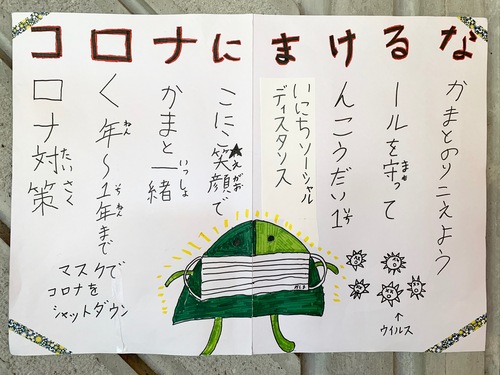 コロナにまけるな
かまとのりこえよう
ールを守って
んこうだい1
いにちソーシャル
ディスタンス
こにこ笑顔で
かまと一緒
く年〜1年まで
ロナ対策
マスクで
コロナを
シャットダウン
ウイルス